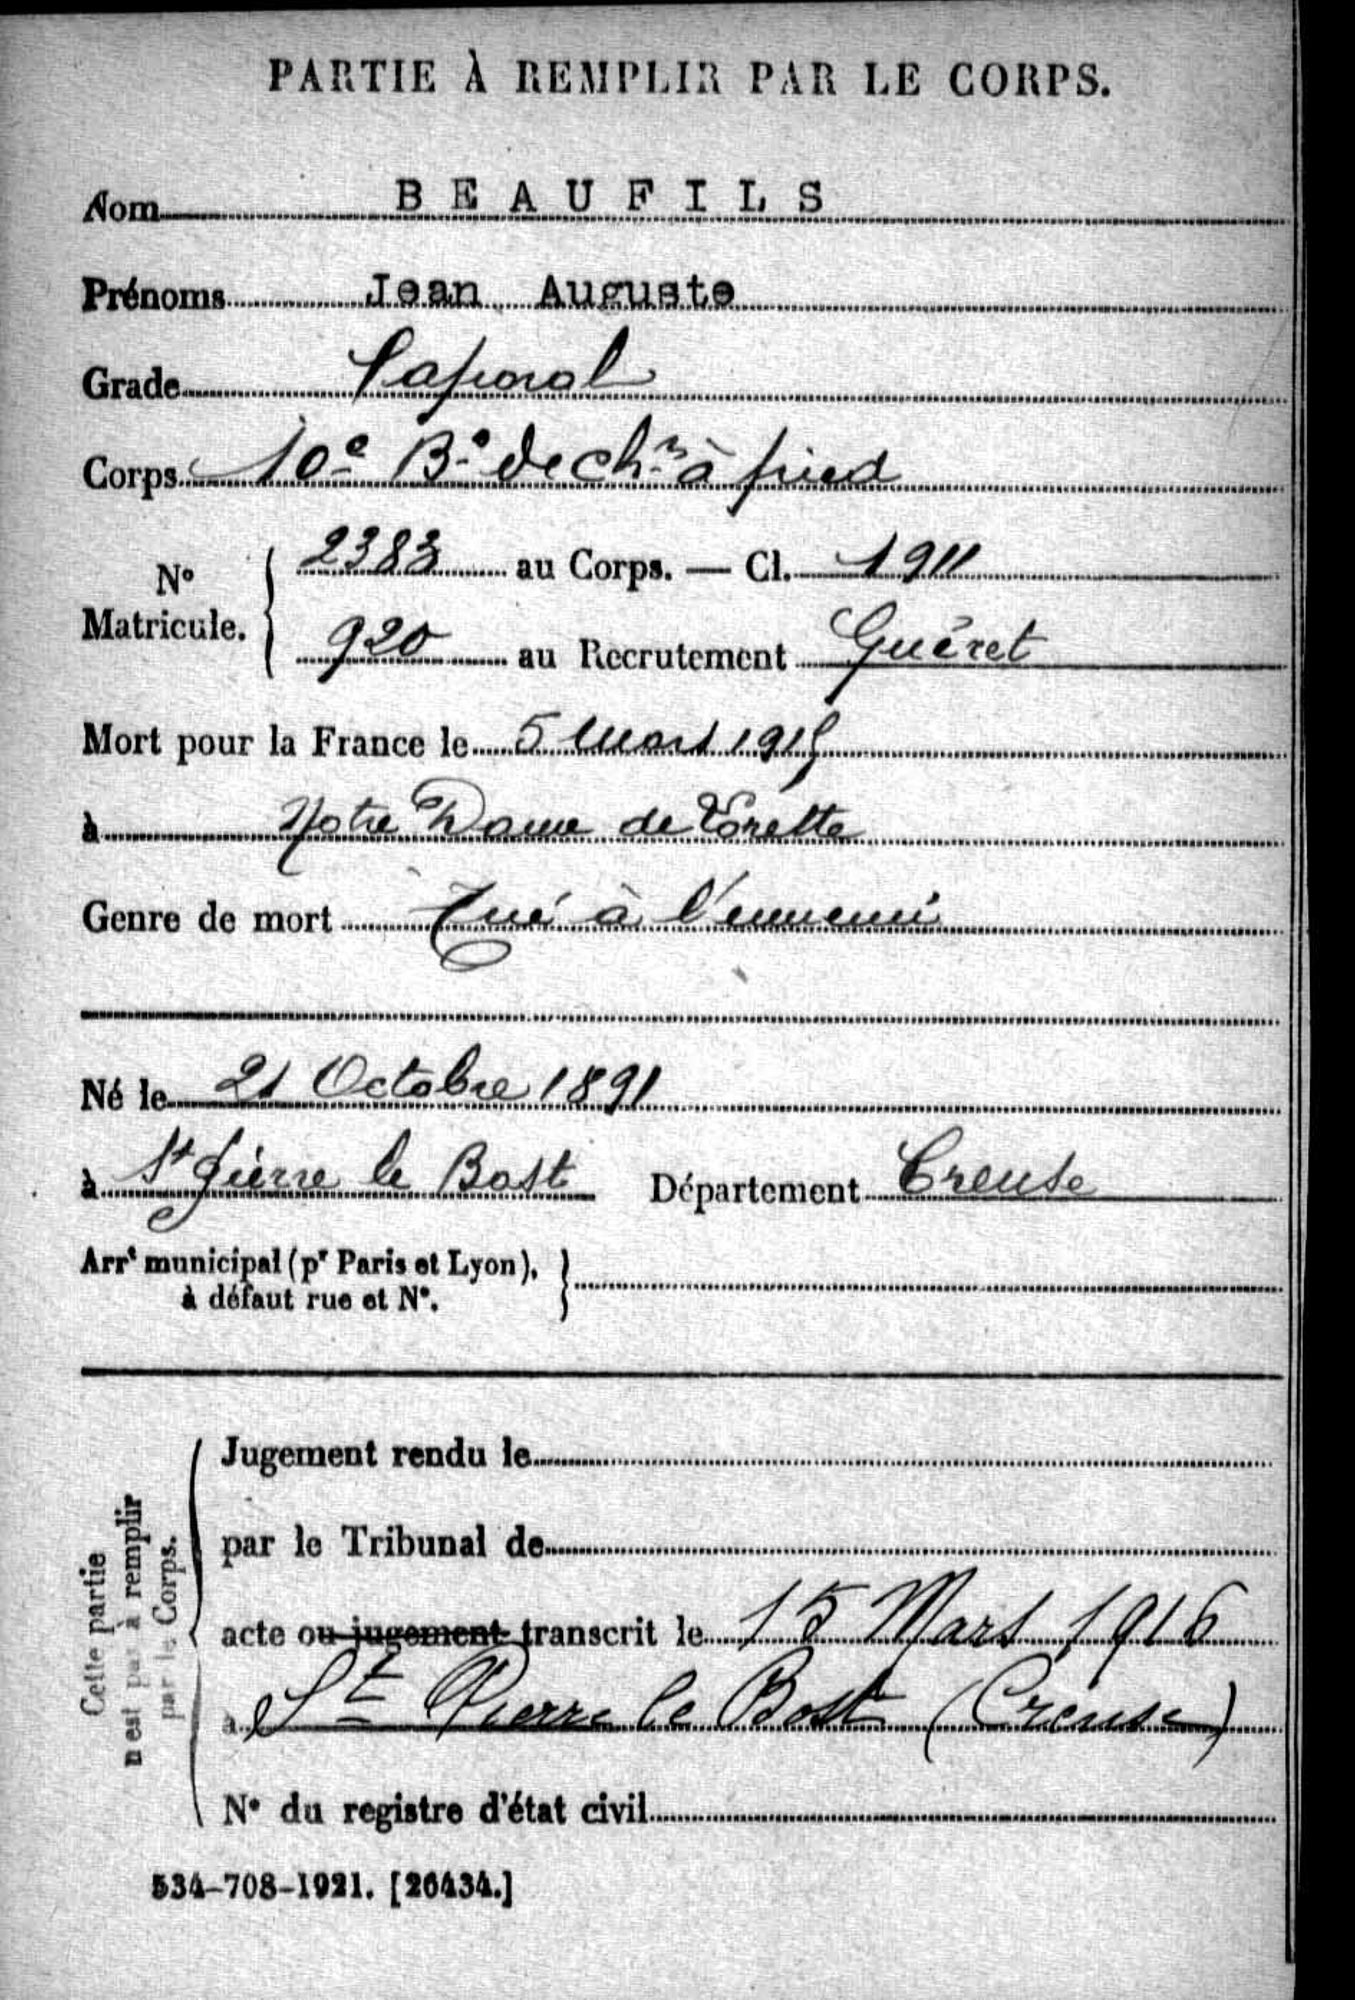 PARTIE À REMPLIR PAR LE CORPS.
Nom BEAUFILS
Prénoms Jean Auguste
Grade Caporal
Corps 10e Bn de chrs à pied
N° Matricule. { 2383 au Corps. — Cl. 1911
920 au Recrutement Guéret
Mort pour la France le 5 Mars 1915
à Notre Dame de Lorette
Genre de mort Tué à l'ennemi
Né le 21 Octobre 1891
à St Pierre le Bost Département Creuse
Arrt municipal (pr Paris et Lyon), }
à défaut rue et N°.
Cette partie
n'est pas à remplir
par le Corps.
Jugement rendu le
par le Tribunal de
acte ou jugement transcrit le 15 Mars 1916
à St Pierre le Bost (Creuse)
N° du registre d'état civil
534-708-1921. [26434.]